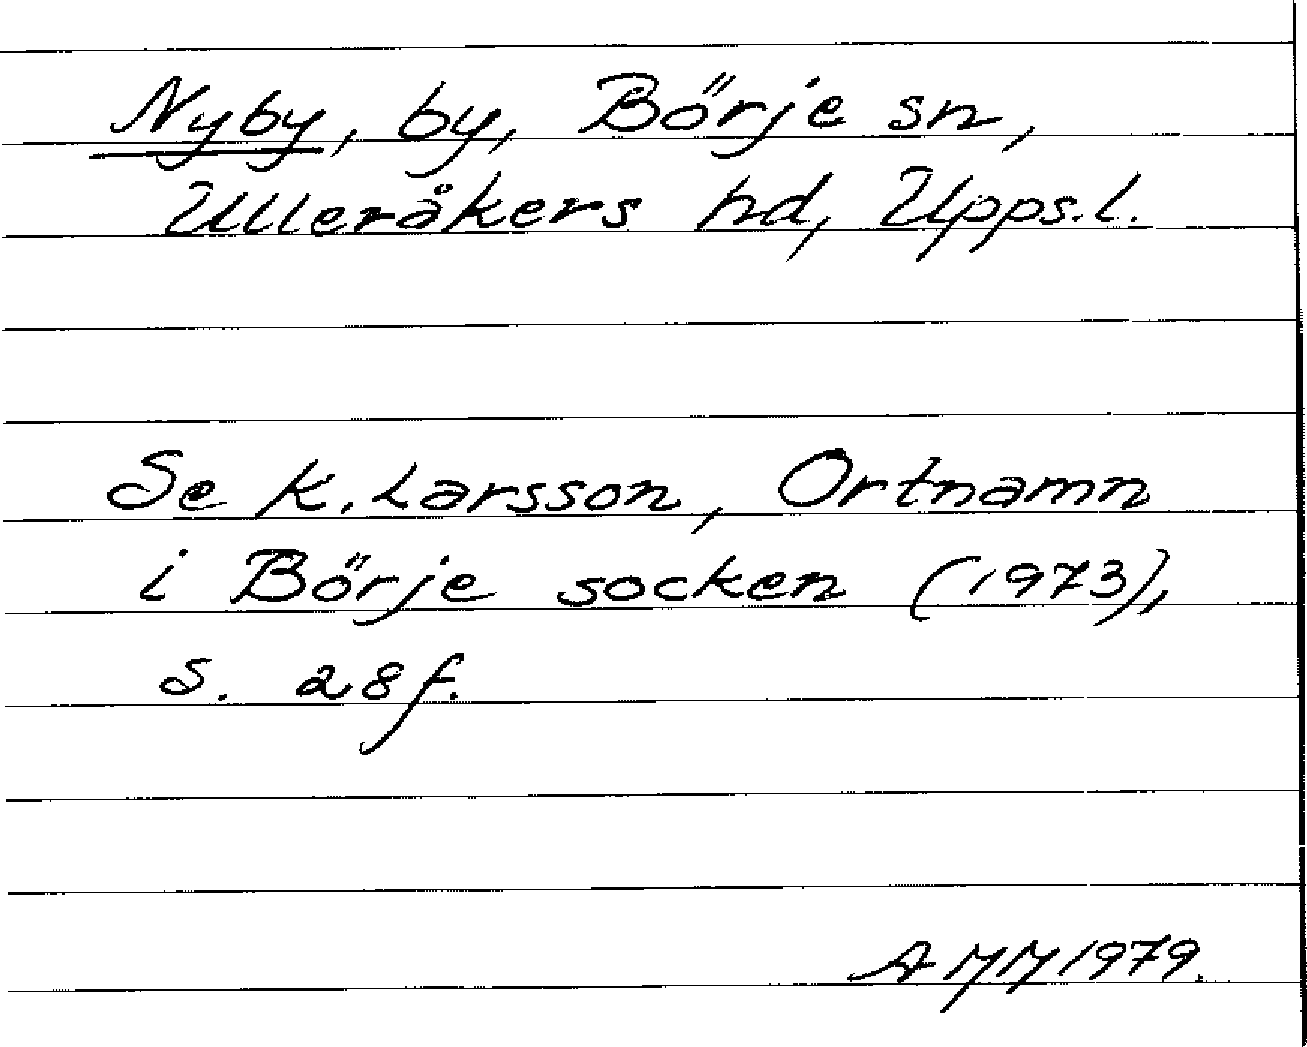 Nyby, by, Börje sn,
Ulleråkers hd, Upps.l.
Se K. Larsson, Ortnamn
i Börje socken (1973),
s. 28 f.
1979.